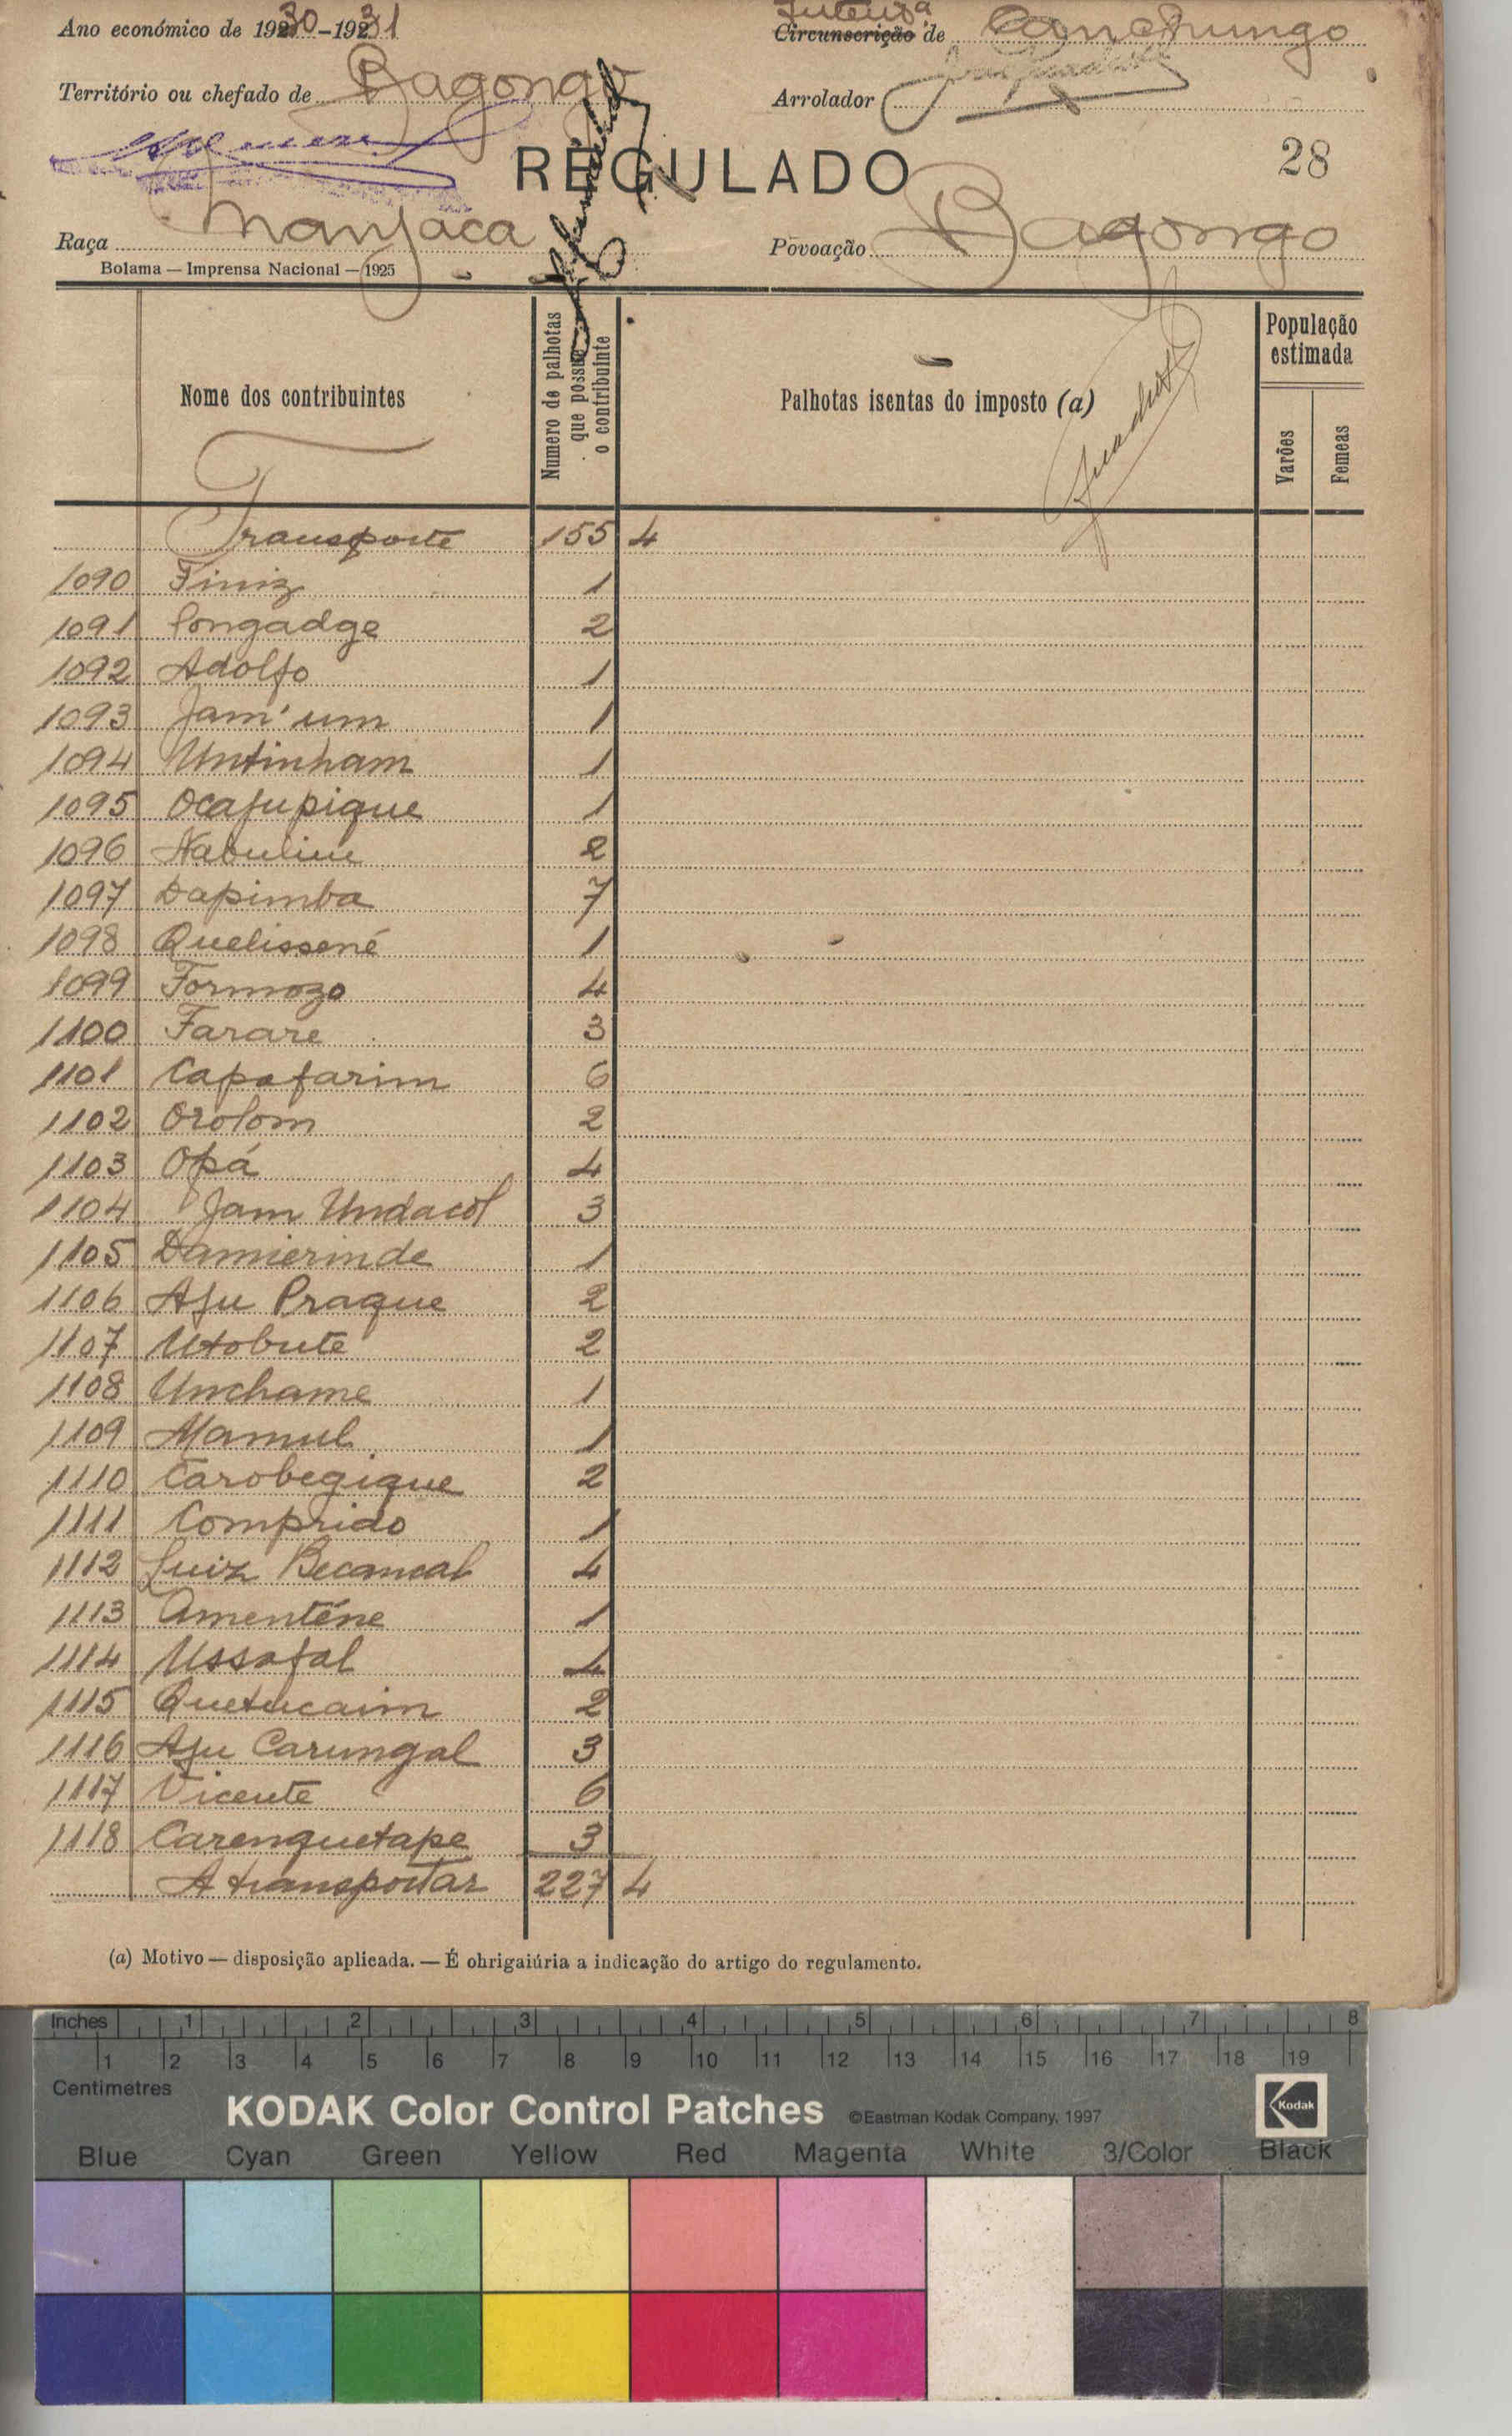 Ano económico de 1930-1931
Intend.a
Circunscrição de Canchungo
Território ou chefado de Bagongo
Arrolador
REGULADO
28
Raça Manjaca
Povoação Bagongo
Bolama — Imprensa Nacional — 1925
Nome dos contribuintes
Numero de palhotas que possue o contribuinte
Palhotas isentas do imposto (a)
População estimada
Varões
Femeas
Transporte 155 4
1090 Finiz 1
1091 Congadge 2
1092 Adolfo 1
1093 Jam'um 1
1094 Untinham 1
1095 Ocajupique 1
1096 Nabuline 2
1097 Dapimba 7
1098 Quelissené 1
1099 Formozo 4
1100 Farare 3
1101 Capafarim 6
1102 Orolom 2
1103 Opá 4
1104 Jam Undacol 3
1105 Damierinde 1
1106 Aju Praque 2
1107 Utobute 2
1108 Unchame 1
1109 Mamul 1
1110 Carobegique 2
1111 Comprido 1
1112 Luiz Becancal 4
1113 Amenténe 1
1114 Ussafal 4
1115 Quetucaim 2
1116 Aju Carungal 3
1117 Vicente 6
1118 Carenguetape 3
A transportar 227 4
(a) Motivo — disposição aplicada. — É ohrigaiúria a indicação do artigo do regulamento.
Inches 1 2 3 4 5 6 7 8
1 2 3 4 5 6 7 8 9 10 11 12 13 14 15 16 17 18 19
Centimetres
KODAK Color Control Patches ©Eastman Kodak Company, 1997 Kodak
Blue Cyan Green Yellow Red Magenta White 3/Color Black